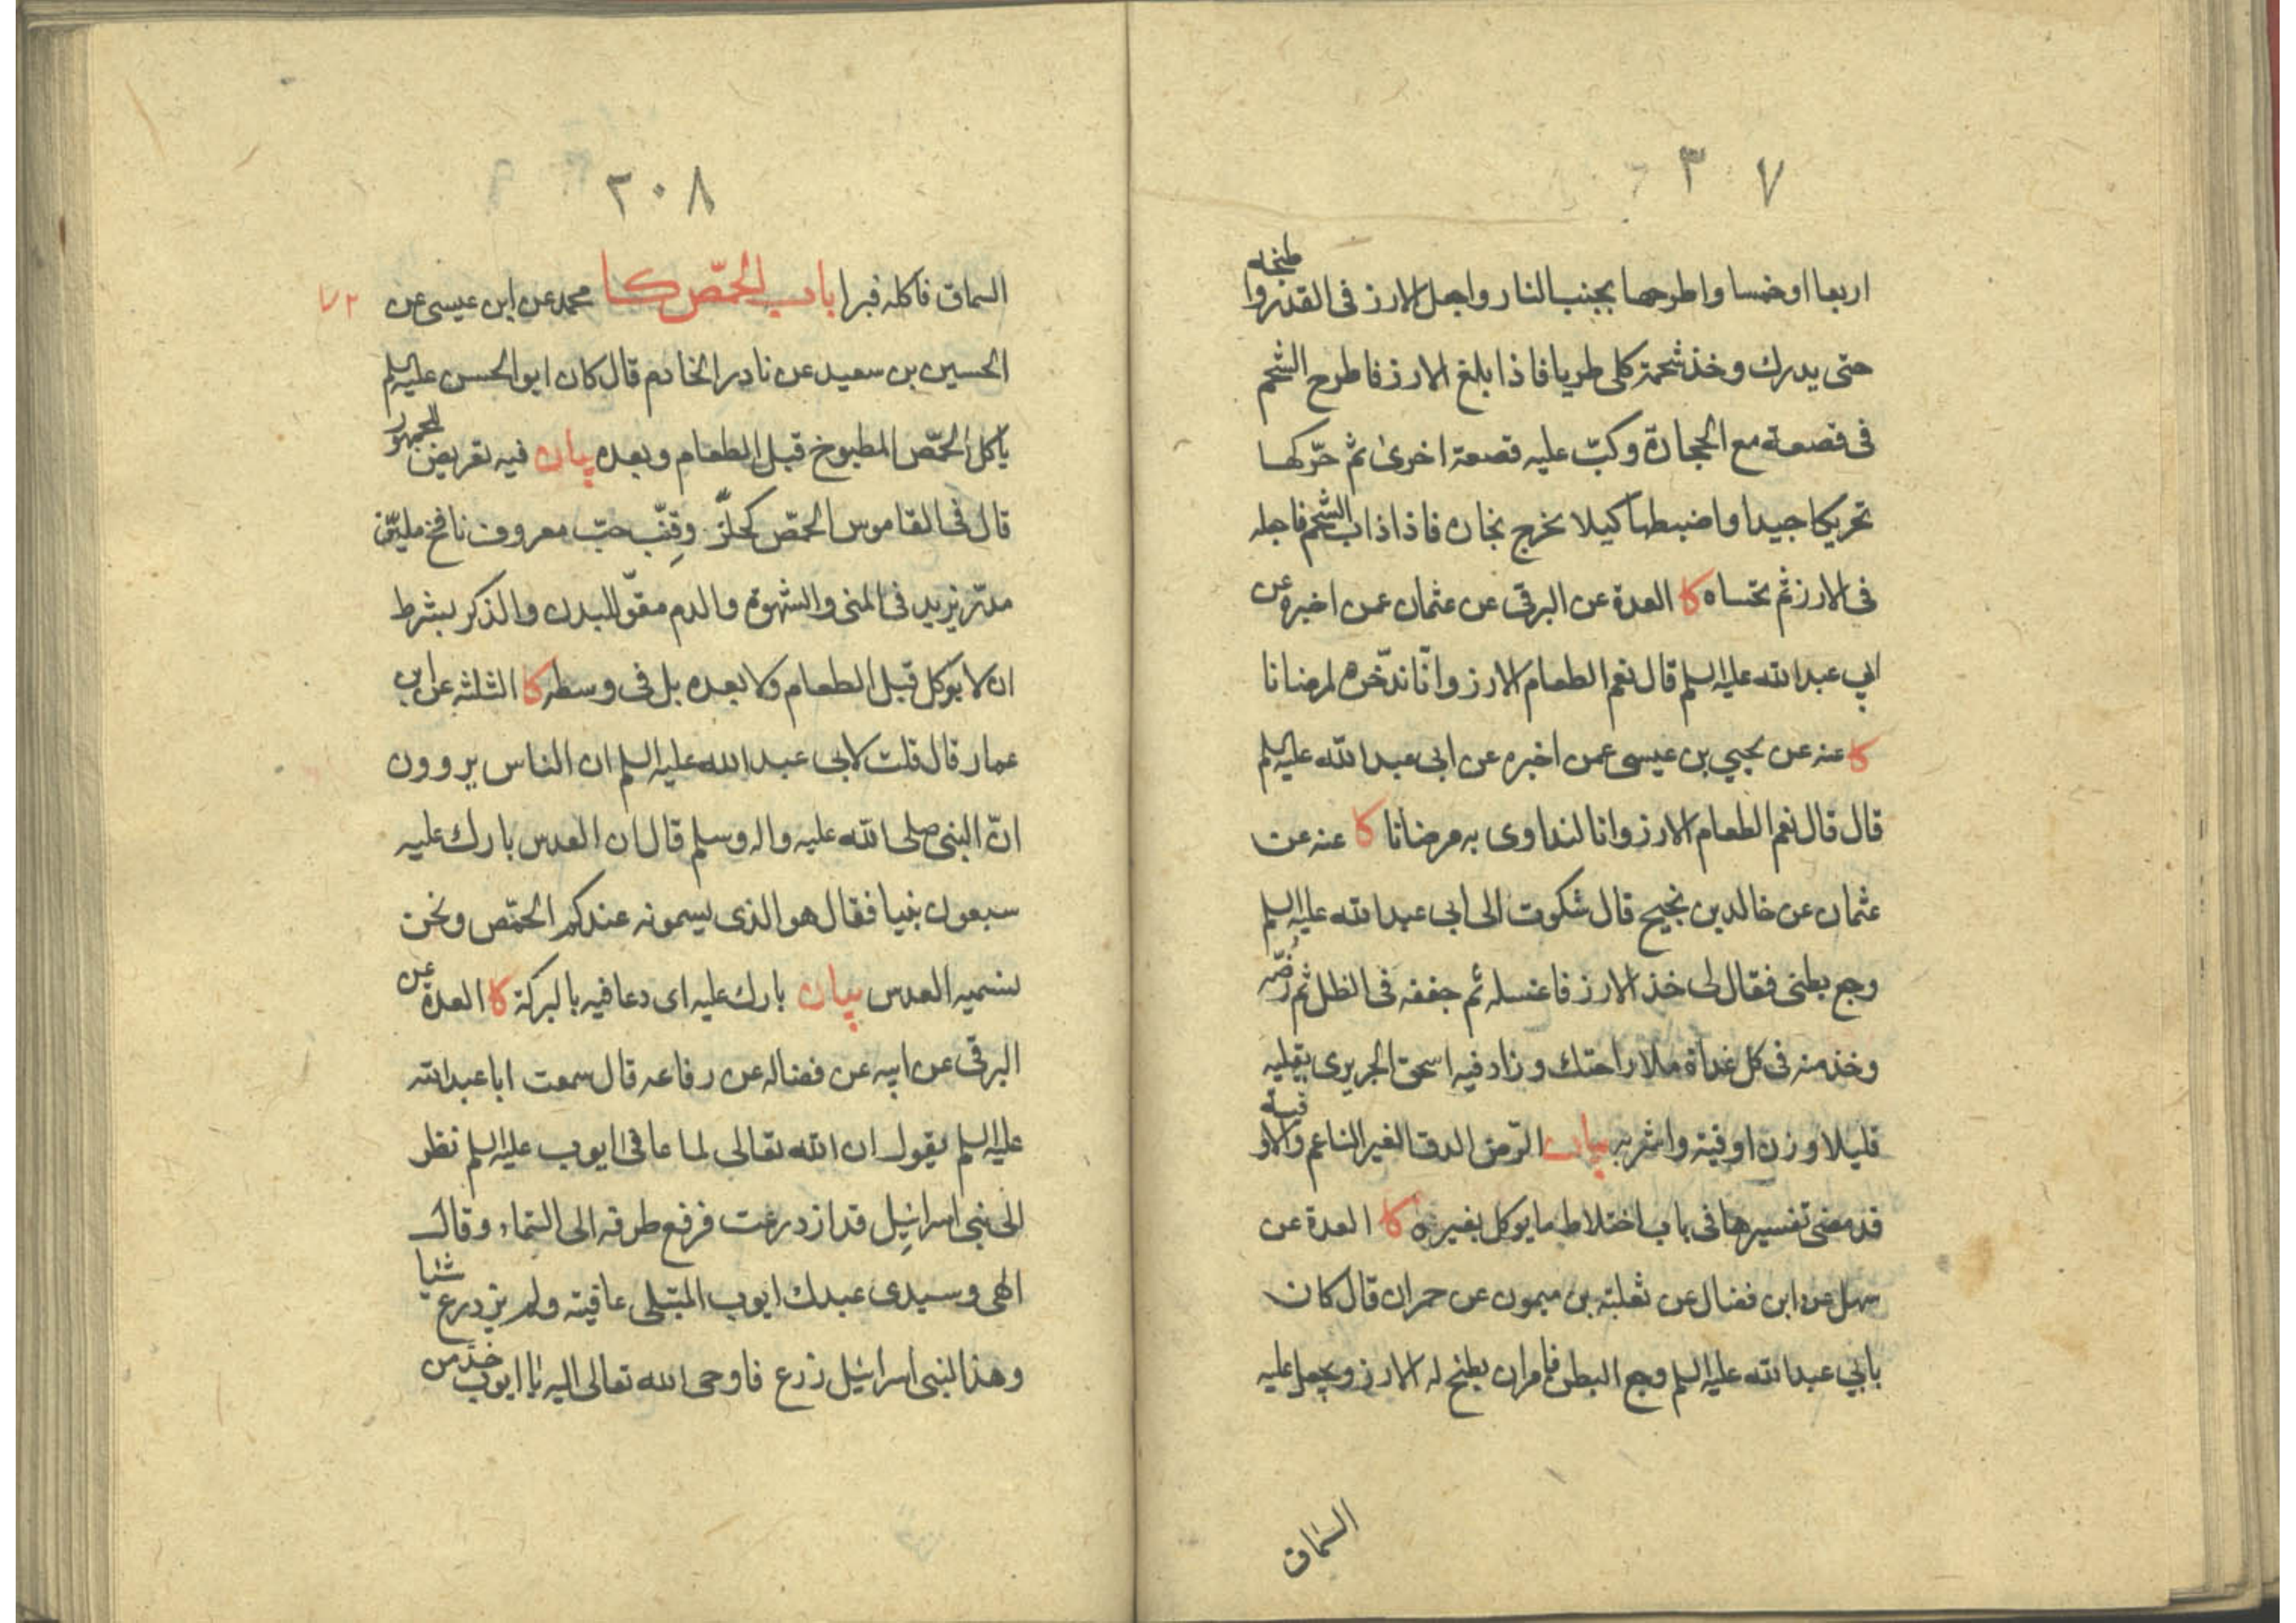 ٣٠٧
اربعا او خمسا واطرحها بجنب النار واجعل الارز فى القدر واطبخه
حتى يدرك وخذ شحمة كلى طريا فاذا بلغ الارز فاطرح الشحم
فى قصعة مع الحجارة وكبّ عليه قصعة اخرى ثم حرّكها
تحريكا جيدا واضبطها كيلا يخرج بخاره فاذا ذاب الشحم فاجعله
فى الارز ثم تحساه كا العدة عن البرقى عن عثمان عمن اخبره عن
ابى عبد الله عليه السلم قال نعم الطعام الارز وانّا ندّخره لمرضانا
كا عنه عن يحيى بن عيسى عمن اخبره عن ابى عبد الله عليه السلم
قال قال نعم الطعام الارز وانا لنداوى به مرضانا كا عنه عن
عثمان عن خالد بن نجيح قال شكوت الى ابى عبد الله عليه السلم
وجع بطنى فقال لى خذ الارز فاغسله ثم جففه فى الظل ثم رضّه
وخذ منه فى كل غداة ملا راحتك وزاد فيه اسحق الجريرى يقليه
قليلا وزن اوقية واشربه بيان الرّض الدق الغير الناعم والاوقية
قد مضى تفسيرها فى باب اختلاط ما يوكل بغيره كا العدة عن
سهل عن ابن فضال عن ثعلبة بن ميمون عن حمران قال كان
بابى عبد الله عليه السلم وجع البطن فامر ان يطبخ له الارز ويجعل عليه
السّماق
٣٠٨
السماق فاكله فبرا باب الحمّص كا محمد عن ابن عيسى عن
الحسين بن سعيد عن نادر الخادم قال كان ابو الحسن عليه السلم
ياكل الحمّص المطبوخ قبل الطعام وبعده بيان فيه تعريض للجمهور
قال فى القاموس الحمّص كحلّز وقنّب حبّ معروف نافخ مليّن
مدرّ يزيد فى المنى والشهوة والدم مقوّ للبدن والذكر بشرط
ان لا يوكل قبل الطعام ولا بعده بل فى وسطه كا الثلثة عن ابن
عمار قال قلت لابى عبد الله عليه السلم ان الناس يروون
انّ النبى صلى الله عليه واله وسلم قال ان العدس بارك عليه
سبعون نبيا فقال هو الذى يسمونه عندكم الحمّص ونحن
نسميه العدس بيان بارك عليه اى دعا فيه بالبركة كا العدة عن
البرقى عن ابيه عن فضاله عن رفاعه قال سمعت ابا عبد الله
عليه السلم يقول ان الله تعالى لما عافى ايوب عليه السلم نظر
الى بنى اسرائيل قد ازدرعت فرفع طرفه الى السّماء وقال
الهى وسيدى عبدك ايوب المبتلى عافيته ولم يزدرع شيا
وهذا لبنى اسرائيل زرع فاوحى الله تعالى اليه يا ايوب خذ من